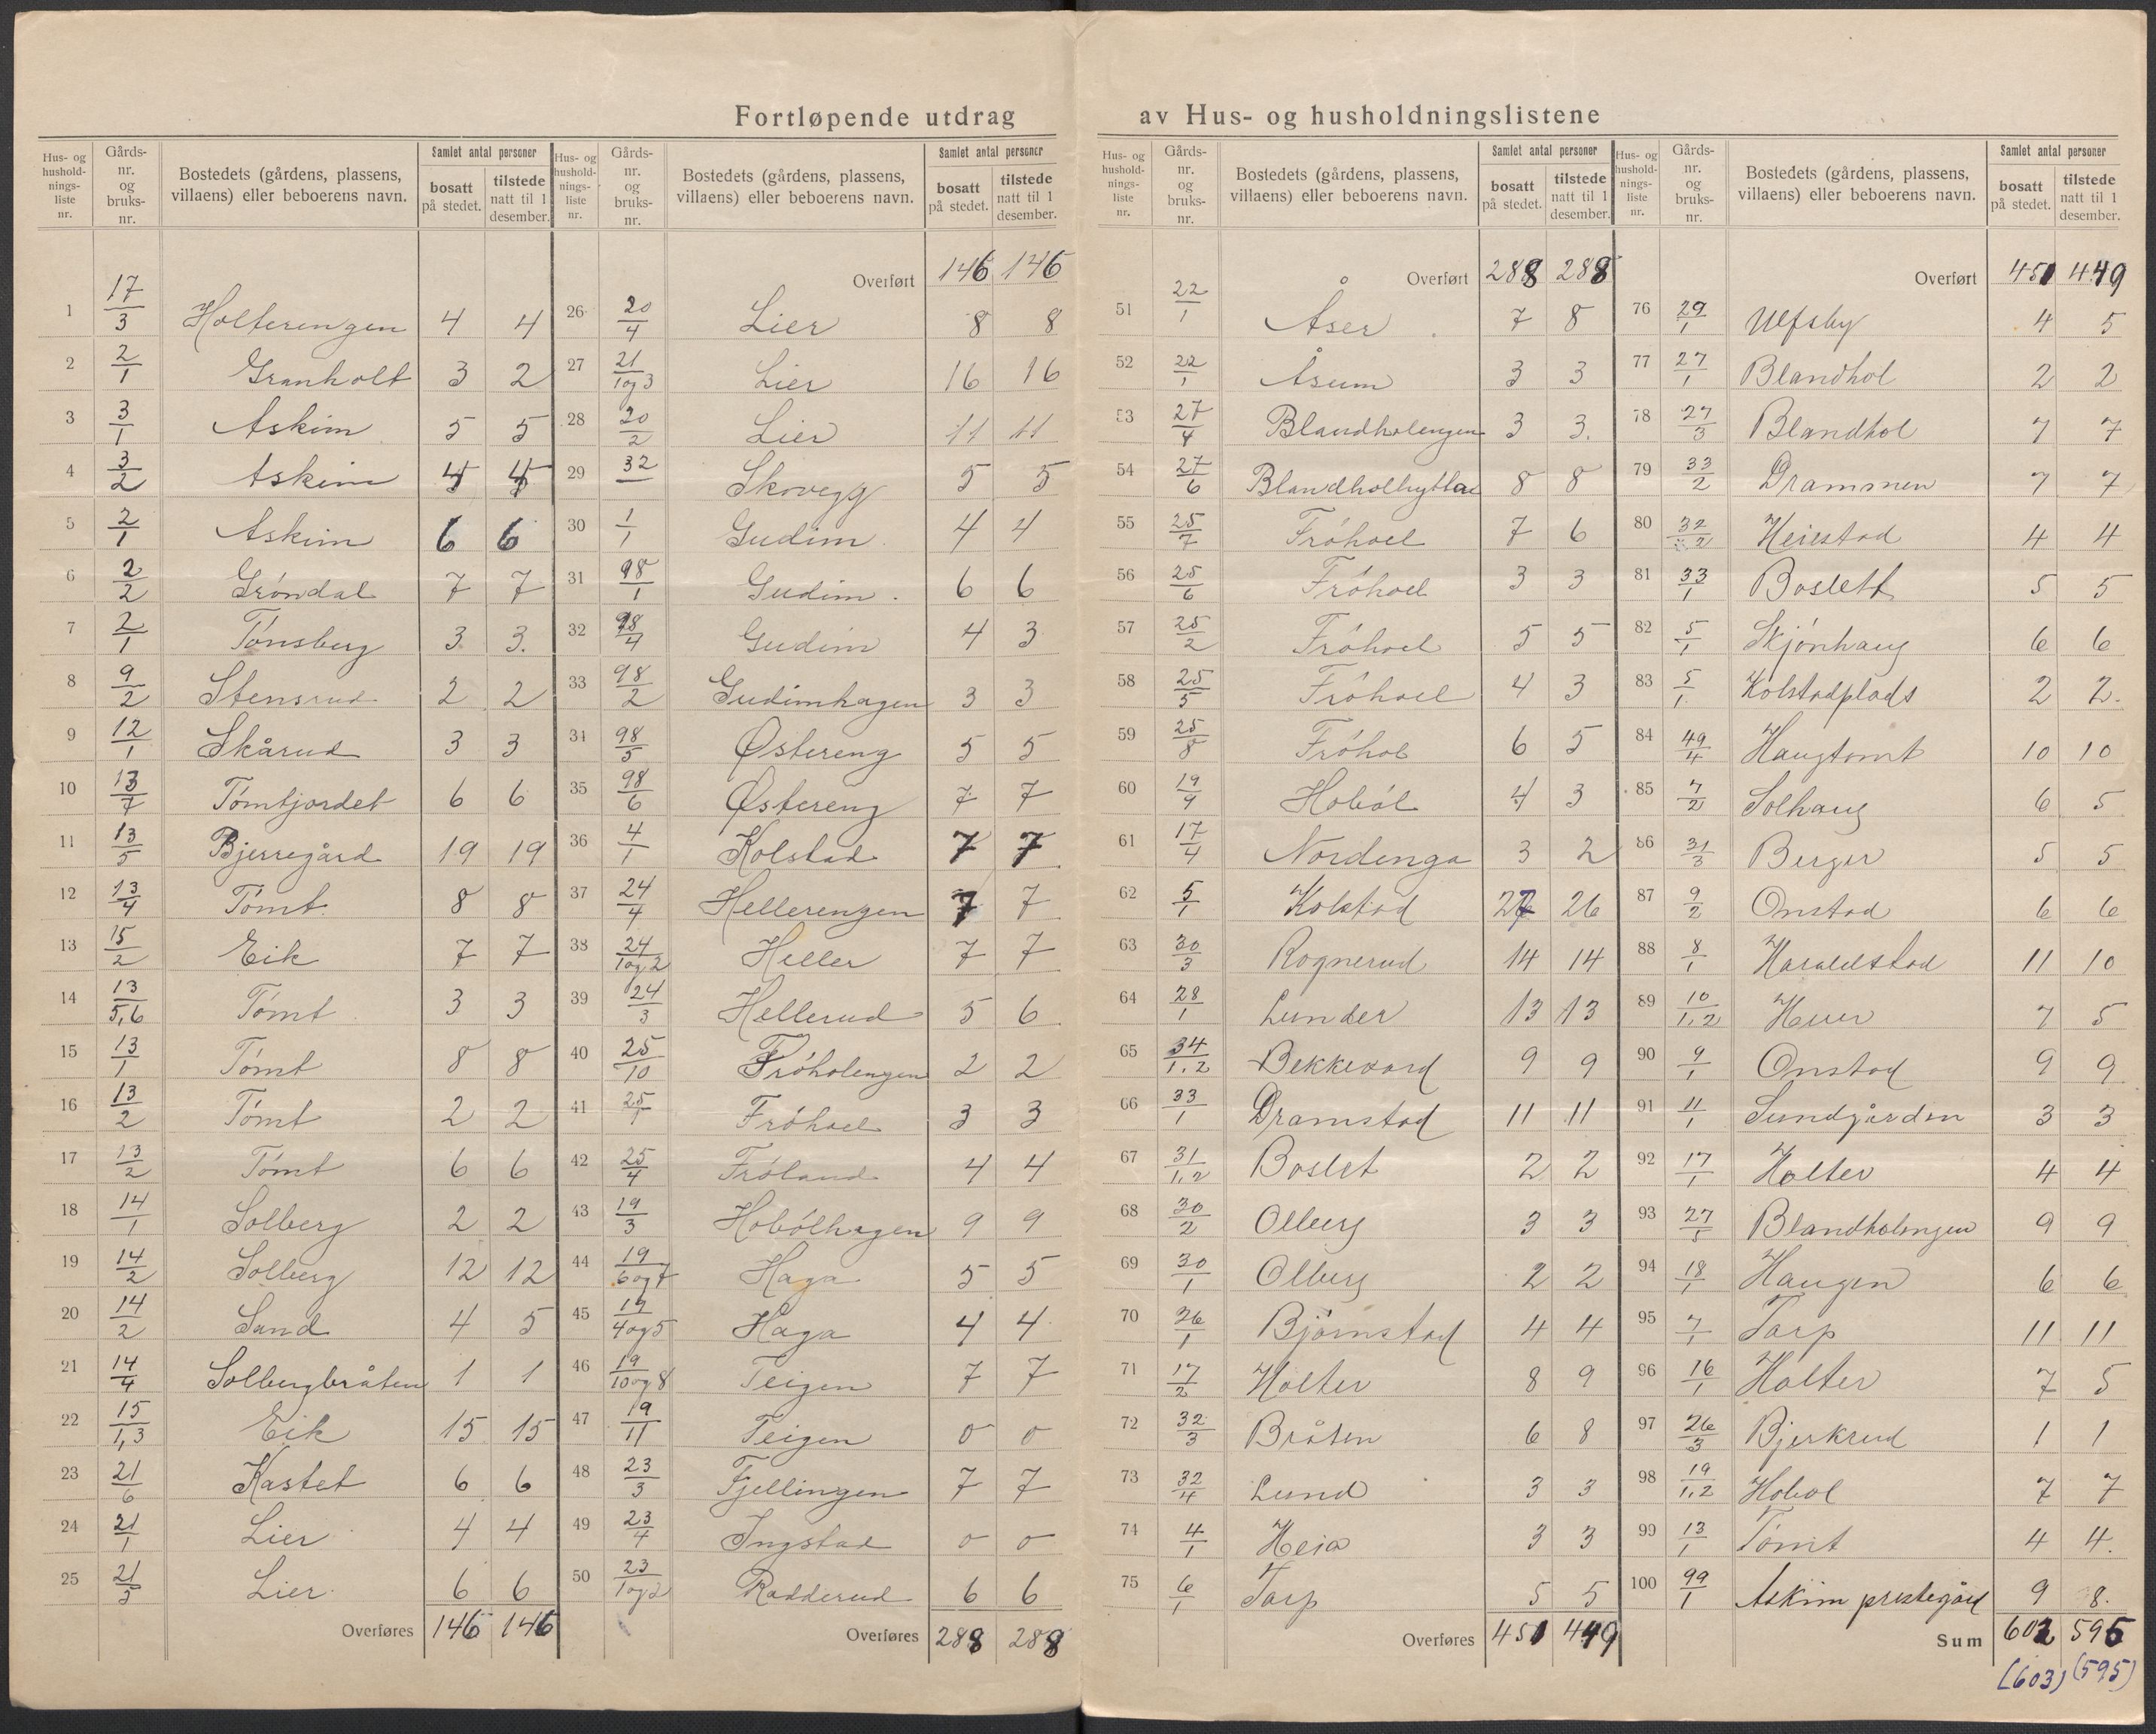 Fortløpende utdrag av Hus- og husholdningslistene
Hus- og hushold-nings-liste nr. | Gårds-nr. og bruks-nr. | Bostedets (gårdens, plassens, villaens) eller beboerens navn. | Samlet antal personer: bosatt på stedet. | tilstede natt til 1 desember.
1 17/3 Holterengen 4 4
2 2/1 Granholt 3 2
3 3/1 Askim 5 5
4 3/2 Askim 4 4
5 2/1 Askim 6 6
6 2/2 Grøndal 7 7
7 2/1 Tønsberg 3 3.
8 9/2 Stensrud 2 2
9 12/1 Skårud 3 3
10 13/7 Tømtjordet 6 6
11 13/5 Bjerregård 19 19
12 13/4 Tømt 8 8
13 15/2 Eik 7 7
14 13/5,6 Tømt 3 3
15 13/1 Tømt 8 8
16 13/2 Tømt 2 2
17 13/2 Tømt 6 6
18 14/1 Solberg 2 2
19 14/2 Solberg 12 12
20 14/2 Sand 4 5
21 14/4 Solbergbråten 1 1
22 15/1,3 Eik 15 15
23 21/6 Kastet 6 6
24 21/1 Lier 4 4
25 21/3 Lier 6 6
Overføres 146 146
Hus- og hushold-nings-liste nr. | Gårds-nr. og bruks-nr. | Bostedets (gårdens, plassens, villaens) eller beboerens navn. | Samlet antal personer: bosatt på stedet. | tilstede natt til 1 desember.
Overført 146 146
26 20/4 Lier 8 8
27 21/1og3 Lier 16 16
28 20/2 Lier 11 11
29 32 Skovegg 5 5
30 1/1 Gudim 4 4
31 98/1 Gudim 6 6
32 98/4 Gudim 4 3
33 98/2 Gudimhagen 3 3
34 98/5 Østereng 5 5
35 98/6 Østereng 7 7
36 4/1 Kolstad 7 7
37 24/4 Hellerengen 7 7
38 24/1og2 Heller 7 7
39 24/3 Hellerud 5 6
40 25/10 Frøholengen 2 2
41 25/1 Frøhoel 3 3
42 25/4 Frøland 4 4
43 19/3 Hobølhagen 9 9
44 19/6og7 Haga 5 5
45 19/4og5 Haga 4 4
46 19/10og8 Teigen 7 7
47 19/11 Teigen 0 0
48 23/3 Fjellingen 7 7
49 23/4 Ingstad 0 0
50 23/1og2 Radderud 6 6
Overføres 288 288
Hus- og hushold-nings-liste nr. | Gårds-nr. og bruks-nr. | Bostedets (gårdens, plassens, villaens) eller beboerens navn. | Samlet antal personer: bosatt på stedet. | tilstede natt til 1 desember.
Overført 288 288
51 22/1 Åser 7 8
52 22/1 Åsum 3 3
53 27/4 Blandholengen 3 3.
54 27/6 Blandholhyttan 8 8
55 25/7 Frøhoel 7 6
56 25/6 Frøhoel 3 3
57 25/2 Frøhoel 5 5
58 25/5 Frøhoel 4 3
59 25/8 Frøhol 6 5
60 19/9 Hobøl 4 3
61 17/4 Nordenga 3 2
62 5/1 Kolstad 27 26
63 30/3 Rognerud 14 14
64 28/1 Lunder 13 13
65 34/1,2 Bekkevard 9 9
66 33/1 Dramstad 11 11
67 31/1,2 Boslet 2 2
68 30/2 Olberg 3 3
69 30/1 Olberg 2 2
70 26/1 Bjørnstad 4 4
71 17/2 Holter 8 9
72 32/3 Bråten 6 8
73 32/4 Lund 3 3
74 4/1 Heia 3 3
75 6/1 Tarp 5 5
Overføres 451 449
Hus- og hushold-nings-liste nr. | Gårds-nr. og bruks-nr. | Bostedets (gårdens, plassens, villaens) eller beboerens navn. | Samlet antal personer: bosatt på stedet. | tilstede natt til 1 desember.
Overført 451 449
76 29/1 Ulfsby 4 5
77 27/1 Blandhol 2 2
78 27/3 Blandhol 7 7
79 33/2 Drammen 7 7
80 32/2 Heiestad 4 4
81 33/1 Boslett 5 5
82 5/1 Skjønhaug 6 6
83 5/1 Kolstadplads 2 2.
84 49/4 Haugtomt 10 10
85 7/2 Solhaug 6 5
86 31/3 Berger 5 5
87 9/2 Onstad 6 6
88 8/1 Haraldstad 11 10
89 10/1,2 Huer 7 5
90 9/1 Onstad 9 9
91 11/1 Sundgården 3 3
92 17/1 Holter 4 4
93 27/5 Blandholengen 9 9
94 18/1 Haugen 6 6
95 7/1 Tarp 11 11
96 16/1 Holter 7 5
97 26/3 Bjerkrud 1 1
98 19/1,2 Hobøl 7 7
99 13/1 Tømt 4 4.
100 99/1 Askim prestegård 9 8.
Sum 602 596
(603) (595)